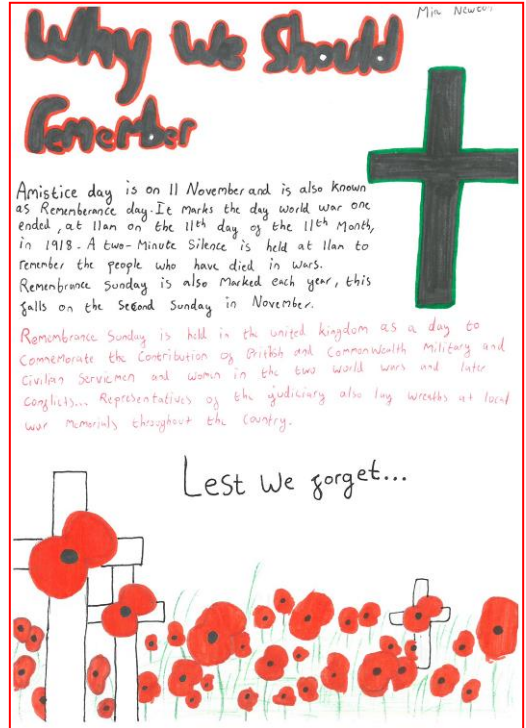 Mia Newton
Why We Should
Remember
Amistice day is on 11 November and is also known
as Rememberance day. It marks the day world war one
ended, at 11am on the 11th day of the 11th Month,
in 1918 - A two-Minute Silence is held at 11am to
remember the people who have died in wars.
Remembrance Sunday is also Marked each year, this
falls on the Second Sunday in November.
Remembrance Sunday is held in the united kingdom as a day to
Commemorate the Contribution of British and Commonwealth Military and
Civilian Servicemen and Women in the two world wars and later
Conflicts... Representatives of the judiciary also lay wreaths at local
war Memorials throughout the Country.
Lest We forget...